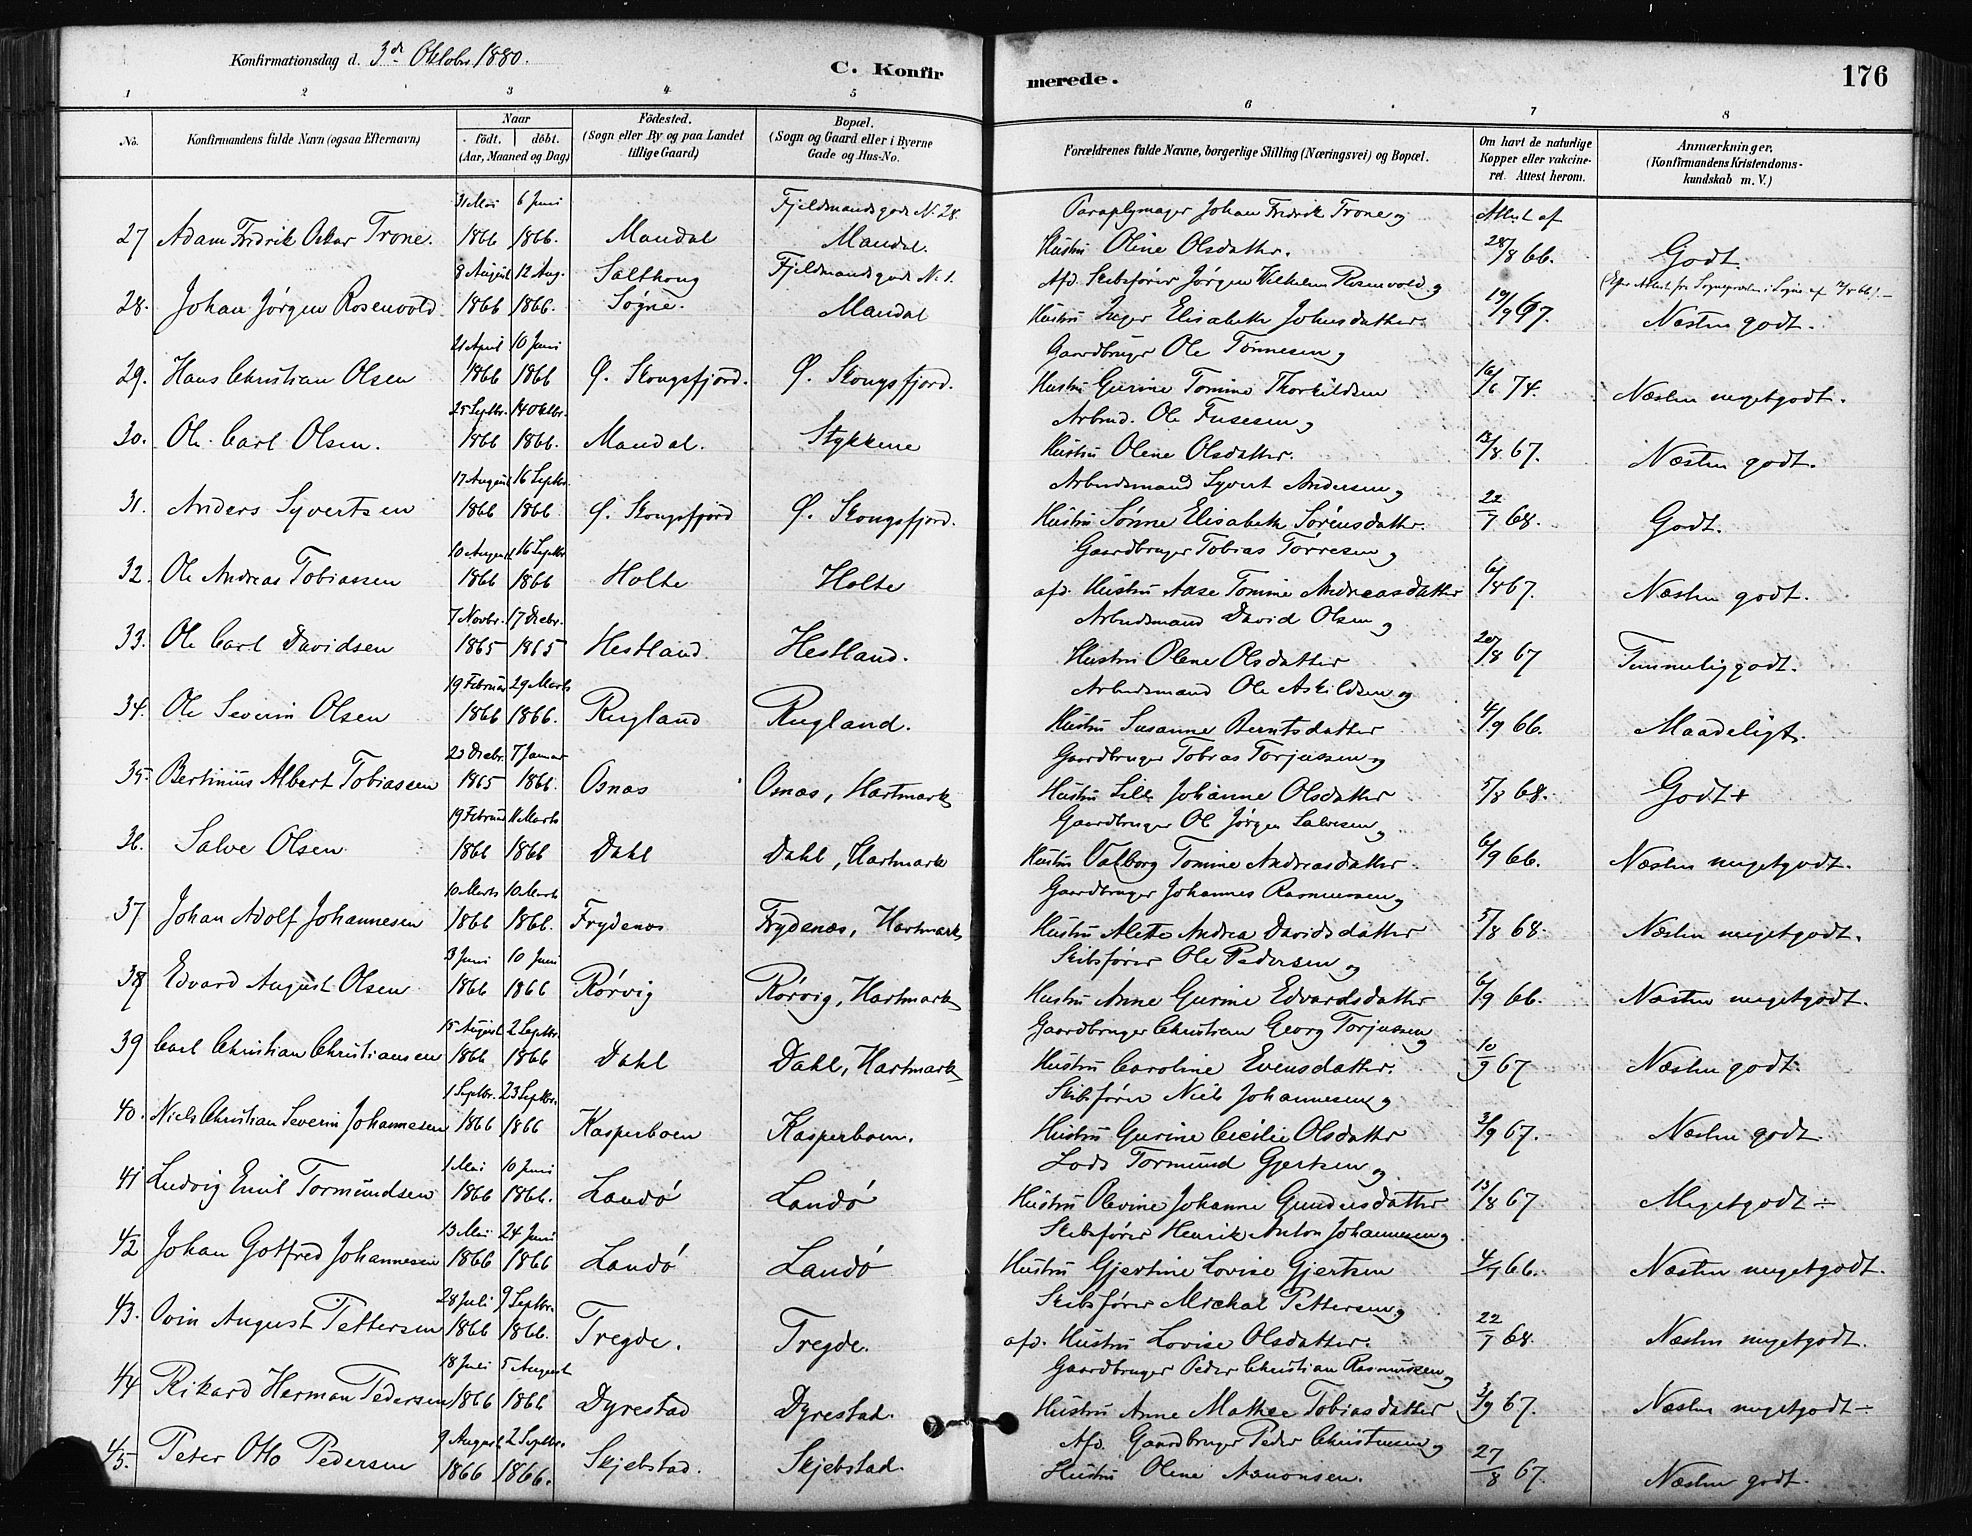 Konfirmationsdag d. 3de Oktobr 1880.
C. Konfirmerede.
176
1 2 3 4 5 6 7 8
No.
Konfirmandens fulde Navn (ogsaa Efternavn)
Naar
født. døbt.
(Aar, Maaned og Dag)
Födested.
(Sogn eller By og paa Landet
tillige Gaard)
Bopæl.
(Sogn og Gaard eller i Byerne
Gade og Hus-No.
Forældrenes fulde Navne, borgerlige Stilling (Næringsvei) og Bopæl.
Om havt de naturlige
Kopper eller vakcine-
ret. Attest herom.
Anmærkninger.
(Konfirmandens Kristendoms-
kundskab m. V.)
31 Mai 6 Juni Fjeldmandsgade N. 28. Paraplymager Johan Fredrik Trone og Attest af
27 Adam Fredrik Oskar Trone. 1866 1866. Mandal Mandal. Hustru Oline Olsdatter. 28/8 66. Godt.
8 August 12 Aug. Fjeldmandsgade N. 1. Afd. Skibsfører Jørgen Wilhelm Rosenvold og
28. Johan Jørgen Rosenvold 1866 1866. Søgne. Mandal Hustru Inger Elisabeth Johnsdatter 19/9 67. Næsten godt.
21 April 10 Juni Gaardbruger Ole Tønnesen og
29. Hans Christian Olsen 1866 1866 Ø. Skongsfjord. Ø. Skongsfjord. Hustru Gurine Tomine Thorkildsen 16/6 74. Næsten megetgodt.
25 Septbr. 14 Oktbr. Arbmd. Ole Fusesen og
30. Ole Carl Olsen. 1866 1866. Mandal. Stykkene Hustru Olene Olsdatter. 13/8 67. Næsten godt.
17 August 16 Septbr. Arbeidsmand Syvert Andersen og
31. Anders Syvertsen 1866 1866 Ø. Skongsfjord Ø. Skongsfjord. Hustru Sønne Elisabeth Sørensdatter. 22/7 68. Godt.
10 August 16 Septbr Gaardbruger Tobias Tørresen og
32. Ole Andreas Tobiassen 1866 1866 Holte Holte afd. Hustru Aase Tomine Andreasdatter 6/8 67. Næsten godt.
7 Novbr. 17 Decbr. Arbeidsmand David Olsen og
33. Ole Carl Davidsen 1865 1865 Hestland. Hestland. Hustru Olene Olsdatter 20/8 67 Temmeliggodt.
19 Februar 29 Marts Arbeidsmand Ole Askildsen og
34. Ole Severin Olsen 1866 1866. Rugland Rugland. Hustru Susanne Berntsdatter 4/9 66. Maadeligt.
Decbr. 7 Januar Gaardbruger Tobias Torjussen og
35 Bertinius Albert Tobiassen 1865 1866. Osnas Osnæs, Hartmark Hustru Sille Johanne Olsdatter 5/8 68. Godt+
19 Februar 11 Marts Gaardbruger Ole Jørgen Salvesen og
36. Salve Olsen 1866 1866 Dahl Dahl, Hartmark Hustru Valborg Tomine Andreasdatter 6/9 66. Næsten megetgodt.
10 Marts 10 Marts Gaardbruger Johannes Rasmussen og
37 Johan Adolf Johannesen 1866 1866. Frydenæs Frydenæs, Hartmark Hustru Alette Andrea Davidsdatter 5/8 68. Næsten megetgodt.
3 Juni 10 Juni Skibsfører Ole Pedersen og
38 Edvard August Olsen 1866 1866 Rørvig Rørvig, Hartmark Hustru Anne Gurine Edvardsdatter 6/9 66. Næsten megetgodt.
15 August 2 Septbr. Gaardbruger Christian Georg Torjussen og
39 Carl Christian Christiansen 1866 1866 Dahl Dahl, Hartmark Hustru Caroline Evensdatter. 10/9 67 Næsten godt
1 Septbr. 23 Septbr. Skibsfører Niels Johannesen og
40. Niels Christian Severin Johannesen 1866 1866 Kasperboen Kasperboen. Hustru Gurine Cicilie Olsdatter 3/9 67. Næsten godt
1 Mai 10 Juni Lods Tormund Gjertsen og
41 Ludvig Emil Tormundsen 1866 1866. Landø Landø Hustru Olevine Johanne Gundersdatter 13/8 67. Megetgodt ÷
13 Mai 24 Juni Skibsfører Henrik Anton Johannesen og
42 Johan Gotfred Johannesen 1866 1866 Landø Landø Hustru Gjertine Lovise Gjertsen 4/9 66. Næsten megetgodt.
28 Juli 9 Septbr. Skibsfører Michal Pettersen og
43. Ovin August Pettersen 1866 1866. Tregde. Tregde. afd. Hustru Lovise Olsdatter. 22/7 68. Næsten megetgodt.
18 Juli 5 August Gaardbruger Peder Christian Rasmussen og
44 Rikard Herman Pedersen 1866 1866 Dyrestad Dyrestad. Hustru Anne Mathee Tobiasdatter 3/9 67. Næsten megetgodt ÷
9 August 2 Septbr. Afd. Gaardbruger Peder Christensen og
45. Peter Otto Pedersen 1866 1866. Skjebstad. Skjebstad. Hustru Olene Aanonsen. 27/8 67. Næsten godt.